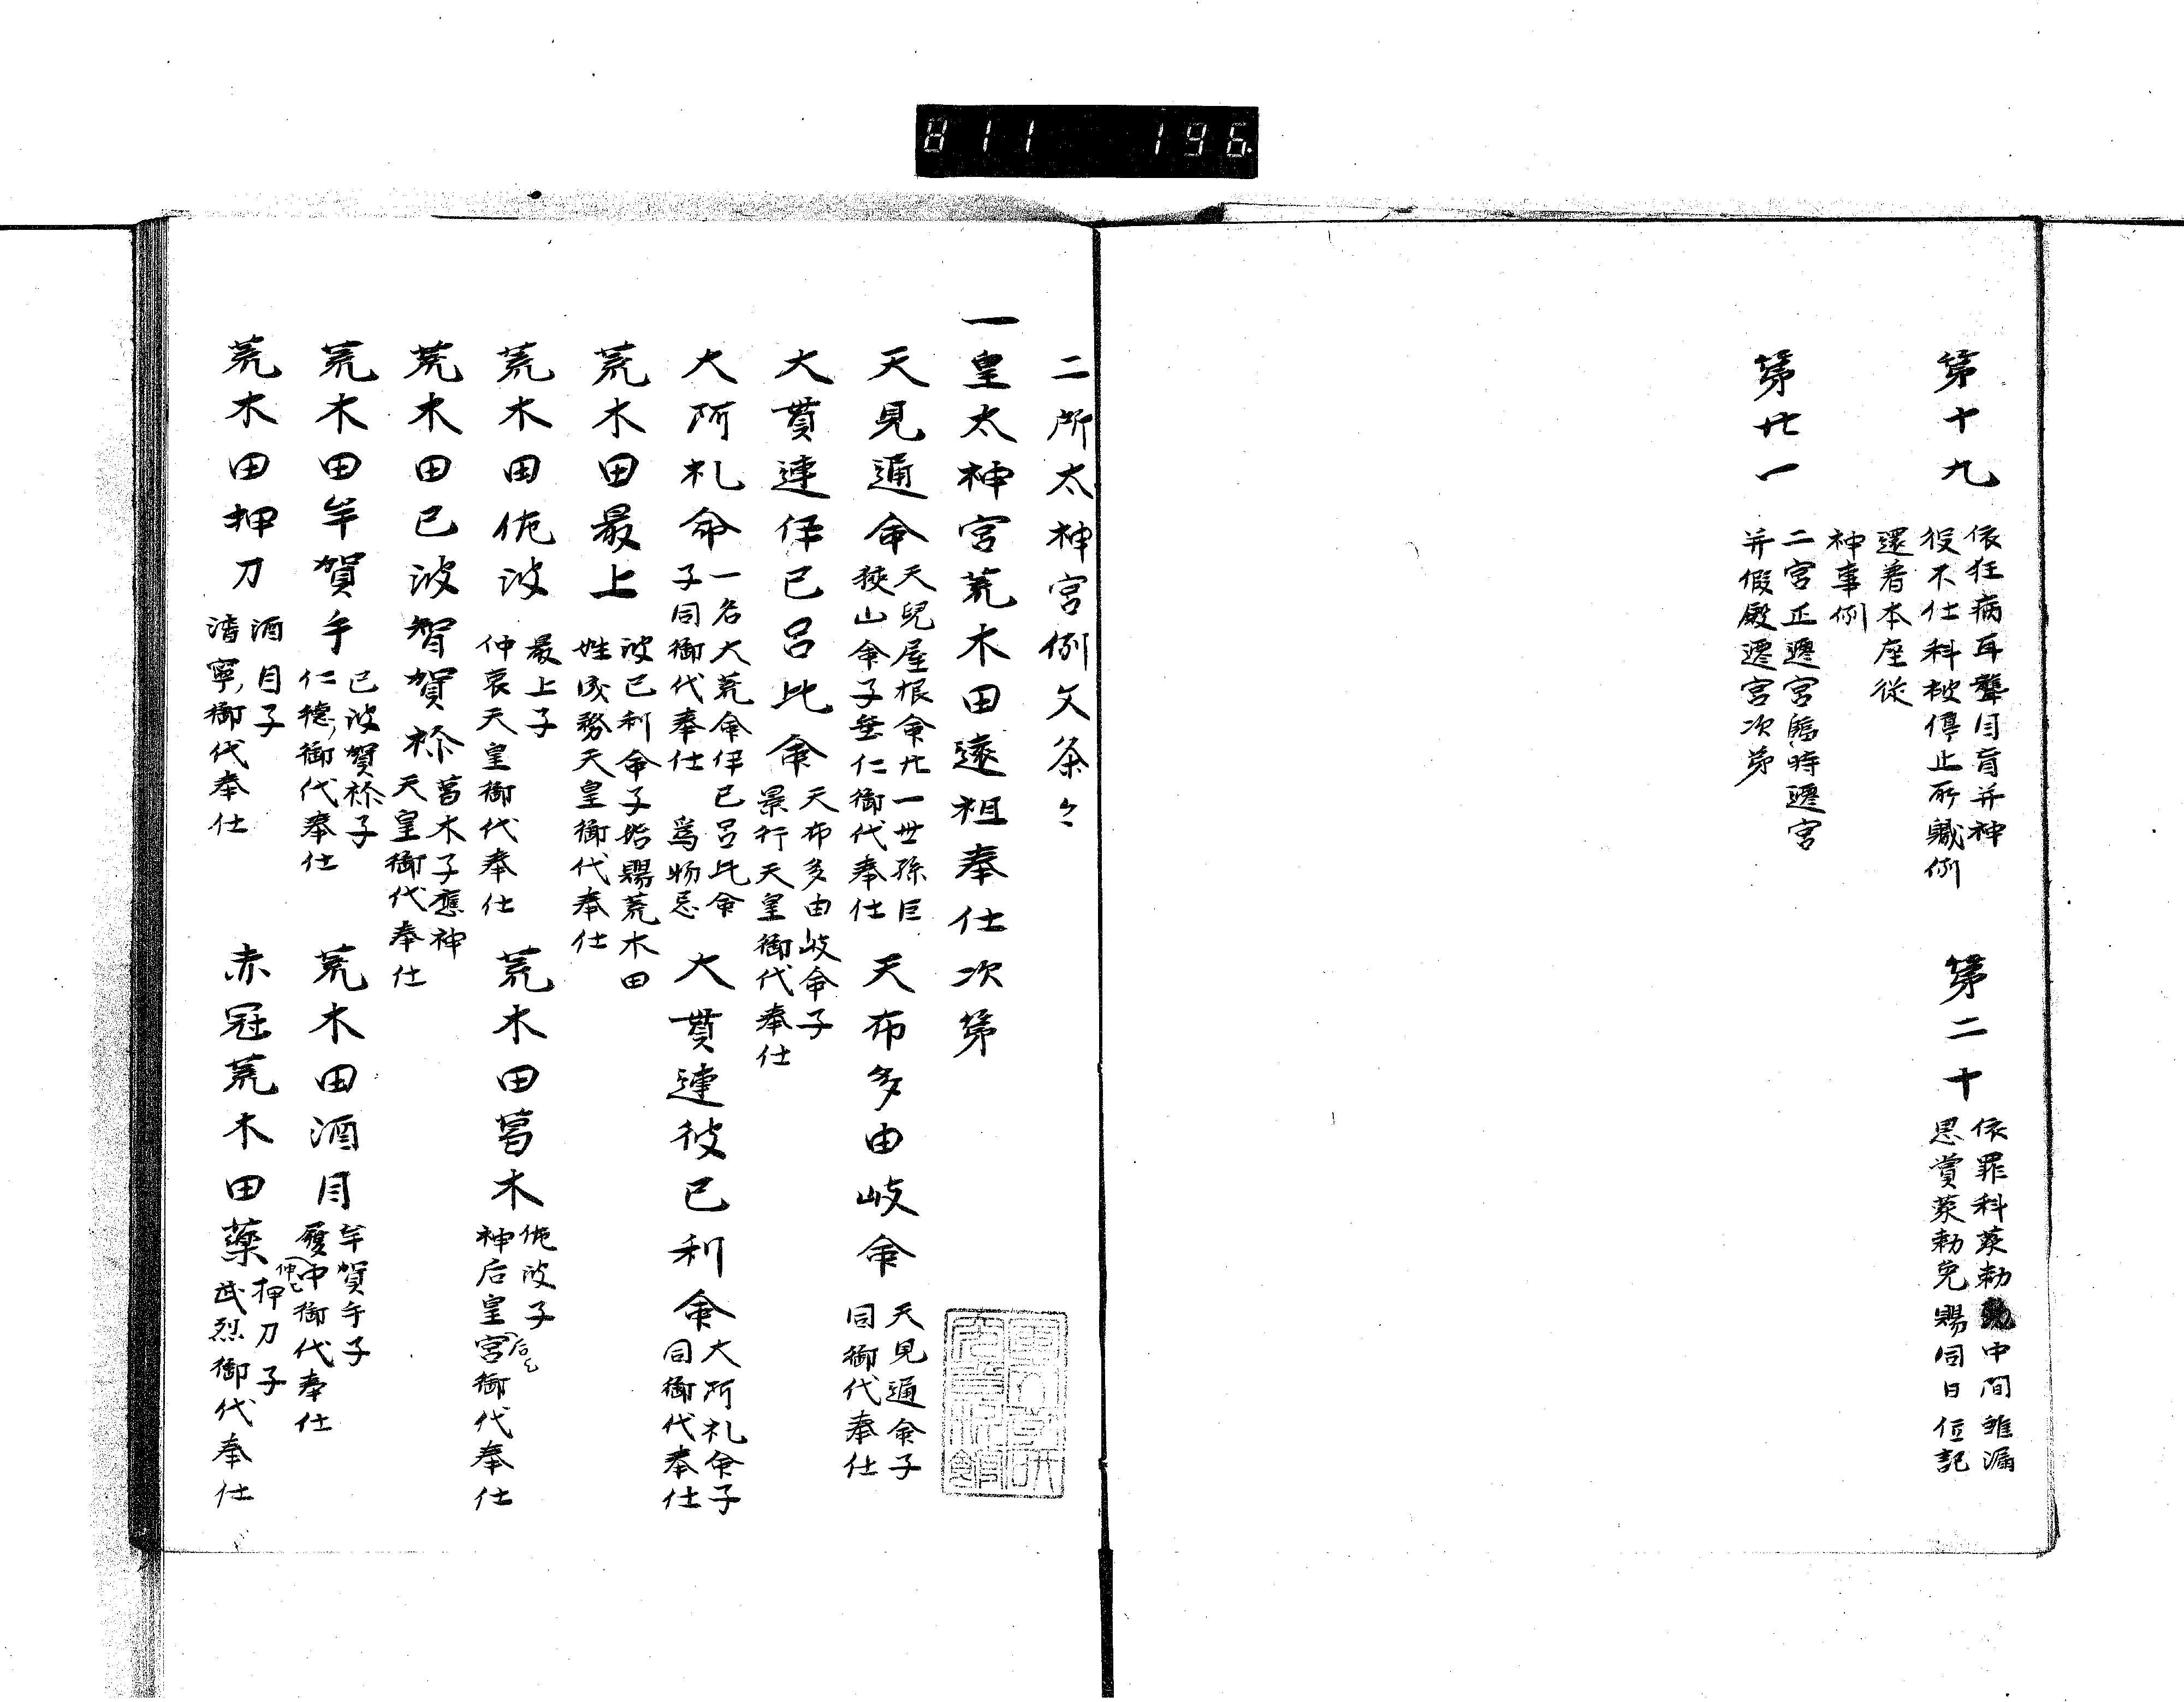 811 196
第十九
依狂病耳聾目盲并神
役不仕科被停止所職例
還着本座従
神事例
第二十
依罪科蒙勅 中間雖漏
恩賞蒙勅免賜同日位記
第廿一
二宮正遷宮臨時遷宮
并假殿遷宮次第
二所太神宮例文条々
一皇太神宮荒木田遠祖奉仕次第
天見通命
天兒屋根命廿一世孫巨
狭山命子垂仁御代奉仕
天布多由岐命
天見通命子
同御代奉仕
大貫連伊己呂比命
天布多由岐命子
景行天皇御代奉仕
大阿礼命
一名大荒命伊己呂比命
子同御代奉仕 為物忌
大貫連彼己利命
大阿礼命子
同御代奉仕
荒木田最上
波己利命子始賜荒木田
姓成務天皇御代奉仕
荒木田佗波
最上子
仲哀天皇御代奉仕
荒木田葛木
佗波子
神后皇宮御代奉仕
荒木田己波智賀祢
葛木子應神
天皇御代奉仕
荒木田牟賀手
己波賀祢子
仁德御代奉仕
荒木田酒目
牟賀手子
履中御代奉仕
荒木田押刀
酒目子
清寧御代奉仕
赤冠荒木田藥
押刀子
武烈御代奉仕